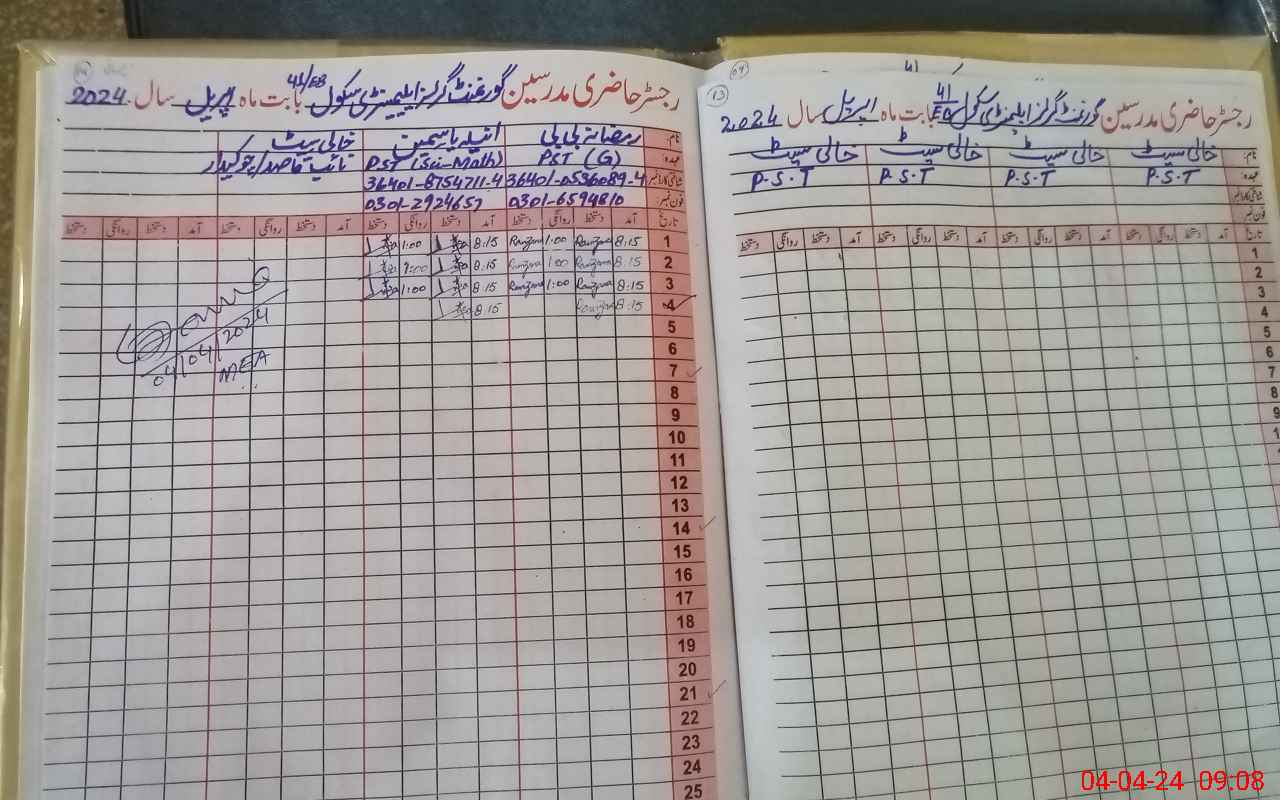 رجسٹر حاضری مدرسین گورنمنٹ گرلز ایلیمنٹری سکول 41/EB بابت ماہ اپریل سال 2024
نام: رمضانہ بی بی انیلہ یاسمین خالی سیٹ
عہدہ: PST (G) PST (Sci-Math) نائب قاصد/چوکیدار
شناختی کارڈ نمبر 36401-0536089-4 36401-8754711-4
فون نمبر: 0301-6594810 0301-2924657
تاریخ آمد دستخط روانگی دستخط آمد دستخط روانگی دستخط آمد روانگی دستخط آمد دستخط روانگی دستخط
1 8:15 Ramzana 1:00 Ramzana 8:15 1:00
2 8:15 Ramzana 1:00 Ramzana 8:15 1:00
3 8:15 Ramzana 1:00 Ramzana 8:15 1:00
4 8:15 Ramzana 8:15
5
6
7
8
9
10
11
12
13
14
15
16
17
18
19
20
21
22
23
24
25
04/04/2024
MEA
13
رجسٹر حاضری مدرسین گورنمنٹ گرلز ایلیمنٹری سکول 41/EB بابت ماہ اپریل سال 2024
نام: خالی سیٹ خالی سیٹ خالی سیٹ خالی سیٹ
عہدہ: P.S.T P.S.T P.S.T P.S.T
شناختی کارڈ نمبر
فون نمبر
تاریخ آمد دستخط روانگی دستخط آمد دستخط روانگی دستخط آمد دستخط روانگی دستخط آمد دستخط روانگی دستخط
1
2
3
4
5
6
7
8
9
04-04-24 09:08